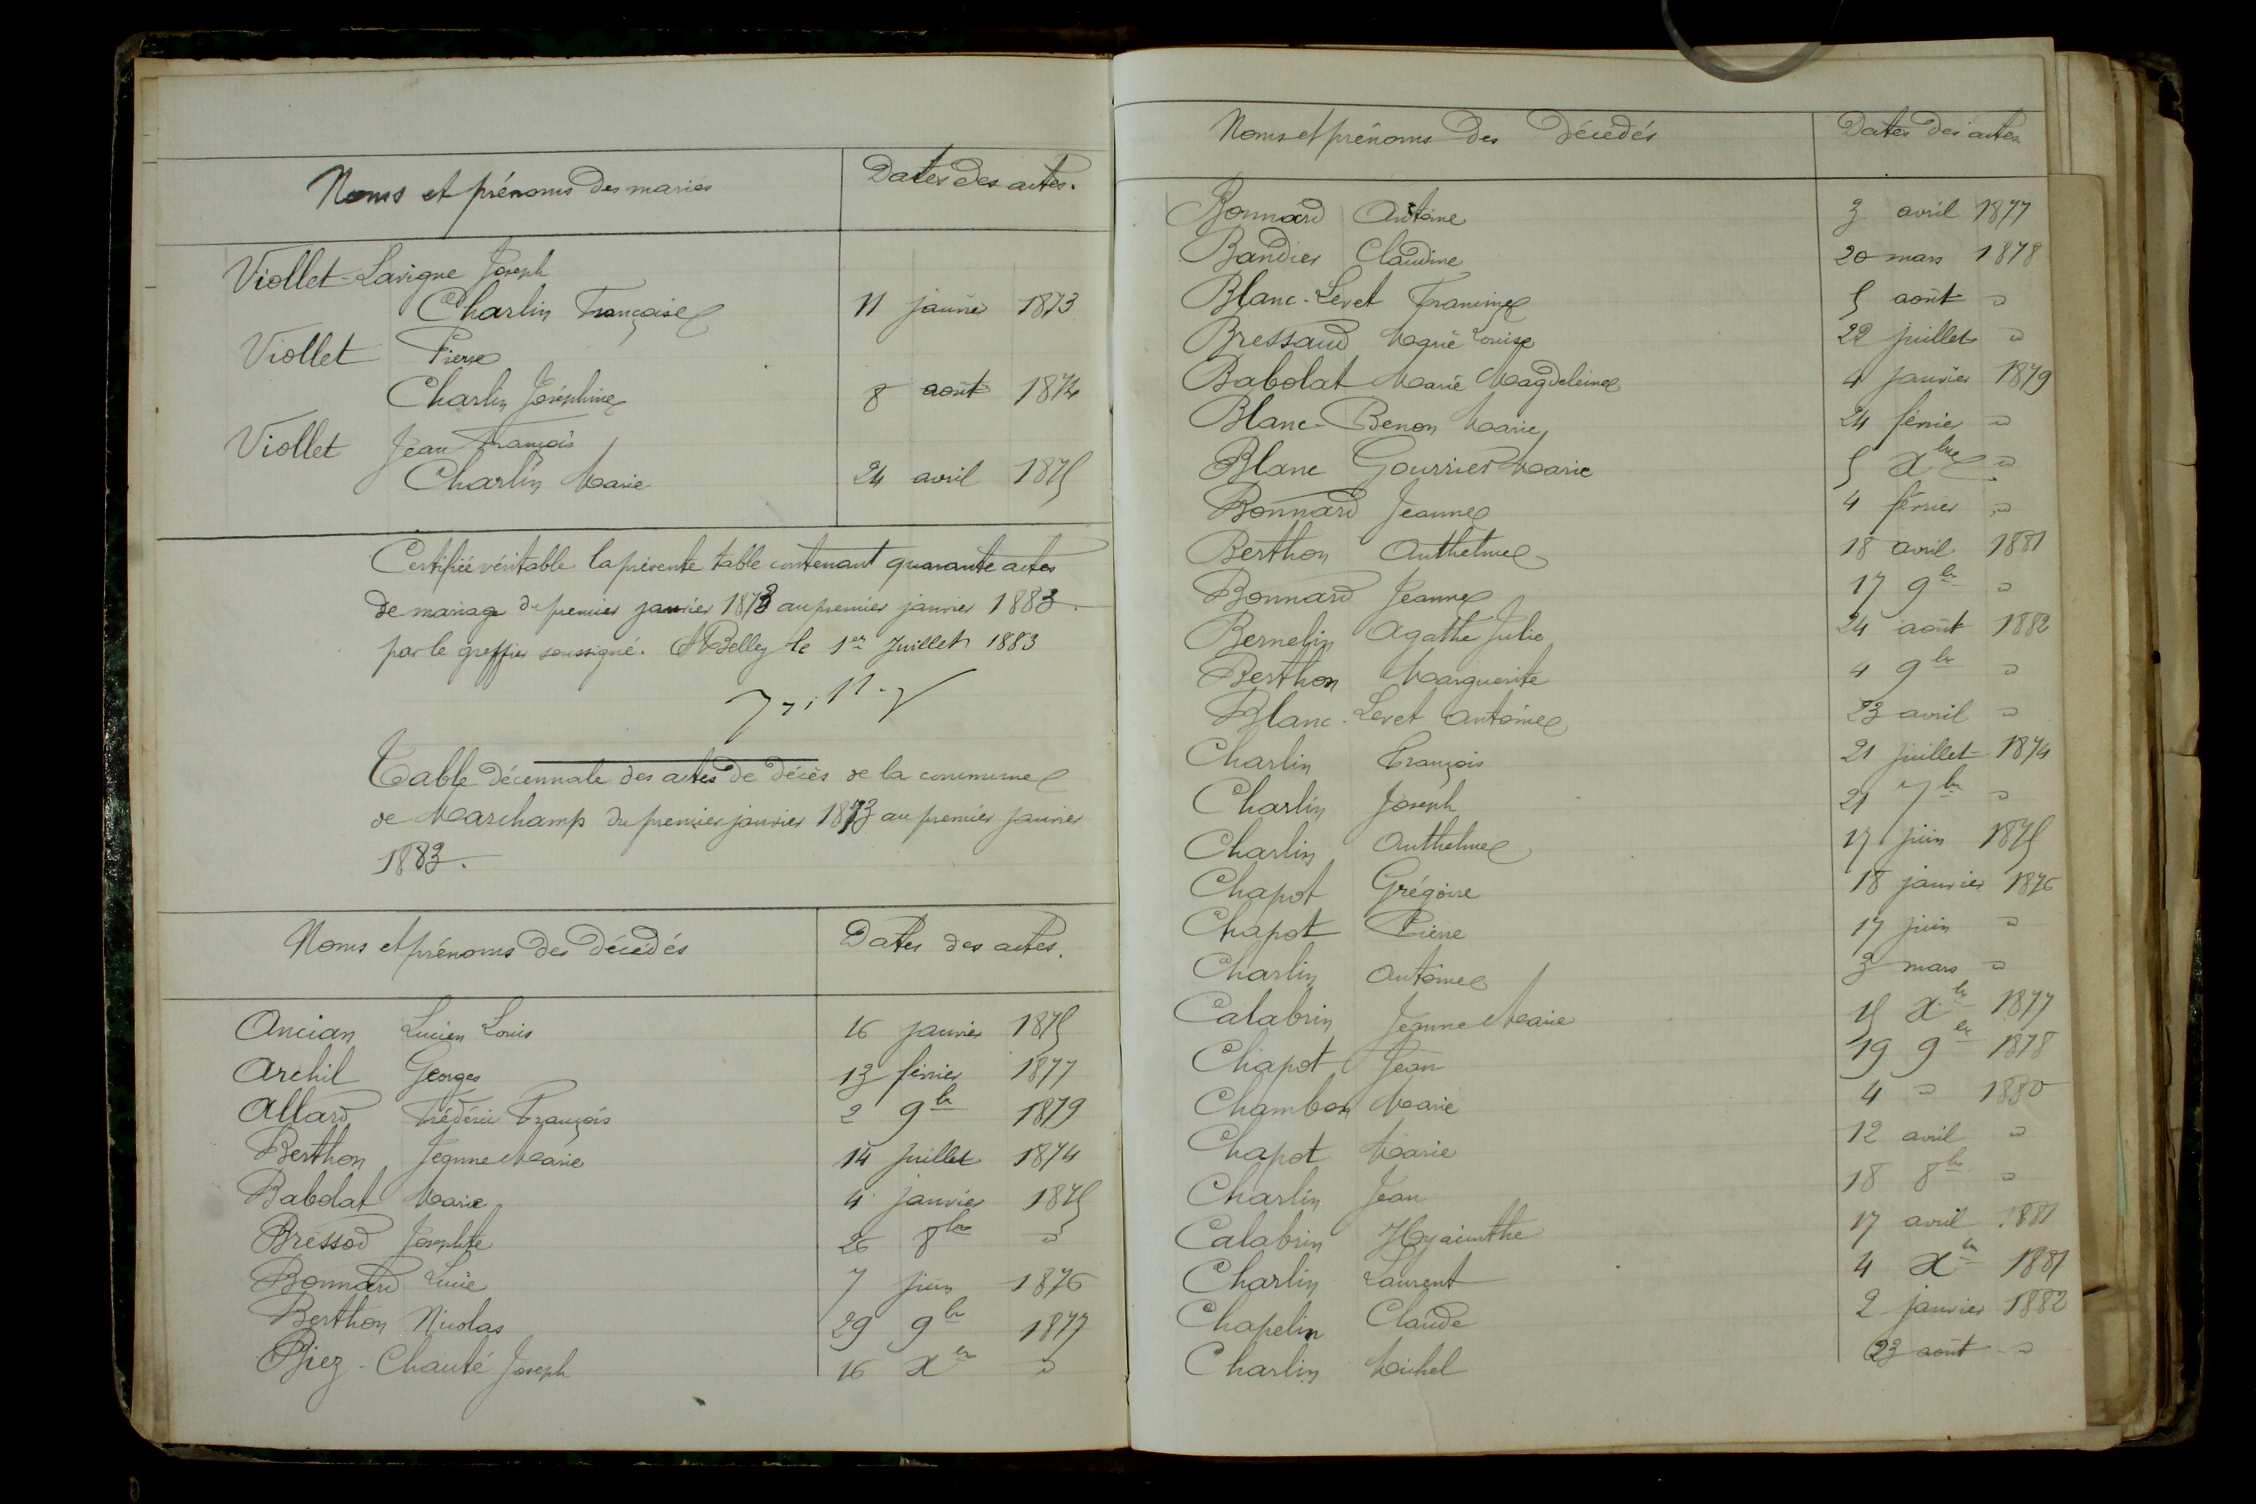 Noms et prénoms des mariés
Dates des actes.
Viollet-Lavigne Joseph
Charlin Françoise 11 janvier 1873
Viollet Pierre
Charlin Joséphine 8 août 1874
Viollet Jean François
Charlin Marie 24 avril 1875
Certifiée véritable la présente table contenant quarante actes
de mariage du premier janvier 1873 au premier janvier 1883.
par le greffier soussigné. A Belley le 1er Juillet 1883
Table décennale des actes de décès de la commune
de Marchamp du premier janvier 1873 au premier janvier
1883.
Noms et prénoms des décédés
Dates des actes.
Ancian Lucien Louis 16 janvier 1875
Archil Georges 13 février 1877
Allard Frédéric François 2 9bre 1879
Berthon Jeanne Marie 14 juillet 1874
Babolat Marie 4 janvier 1875
Bressod Josephte 26 8bre "
Bonnard Lucie 7 juin 1876
Berthon Nicolas 29 9bre 1877
Biez-Chauté Joseph 16 xbre "
Noms et prénoms des décédés
Dates des actes
Bonnard Antoine 3 avril 1877
Bandier Claudine 20 mars 1878
Blanc-Levet Francine 5 août "
Bressaud Marie Louise 22 juillet "
Babolat Marie Magdeleine 4 janvier 1879
Blanc-Benon Marie 24 février "
Blanc Gourrier Marie 5 xbre "
Bonnard Jeanne 4 février "
Berthon Anthelme 18 avril 1881
Bonnard Jeanne 17 9bre "
Bernelin Agathe Julie 24 août 1882
Berthon Marguerite 4 9bre "
Blanc-Levet Antoine 23 avril "
Charlin François 21 juillet 1874
Charlin Joseph 21 7bre "
Charlin Anthelme 17 juin 1875
Chapot Grégoire 18 janvier 1876
Chapot Pierre 17 juin "
Charlin Antoine 3 mars "
Calabrin Jeanne Marie 15 xbre 1877
Chapot Jean 19 9bre 1878
Chambon Marie 4 " 1880
Chapot Marie 12 avril "
Charlin Jean 18 8bre "
Calabrin Hyacinthe 17 avril 1881
Charlin Laurent 4 xbre 1881
Chapelin Claude 2 janvier 1882
Charlin Michel 23 août "